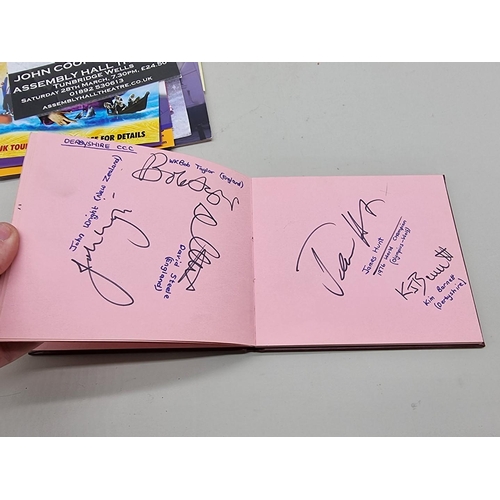 JOHN
ASSEMBLY HALL
TUNBRIDGE WELLS
SATURDAY 28TH MARCH, 7.30PM, £24.50
01892 530613
ASSEMBLYHALLTHEATRE.CO.UK
FOR DETAILS
UK TOUR
DERBYSHIRE CCC
WK Bob Taylor (England)
John Wright (New Zealand)
David Steele
(England)
James Hunt
1976 World Champion
Kim Barnett
(Derbyshire)